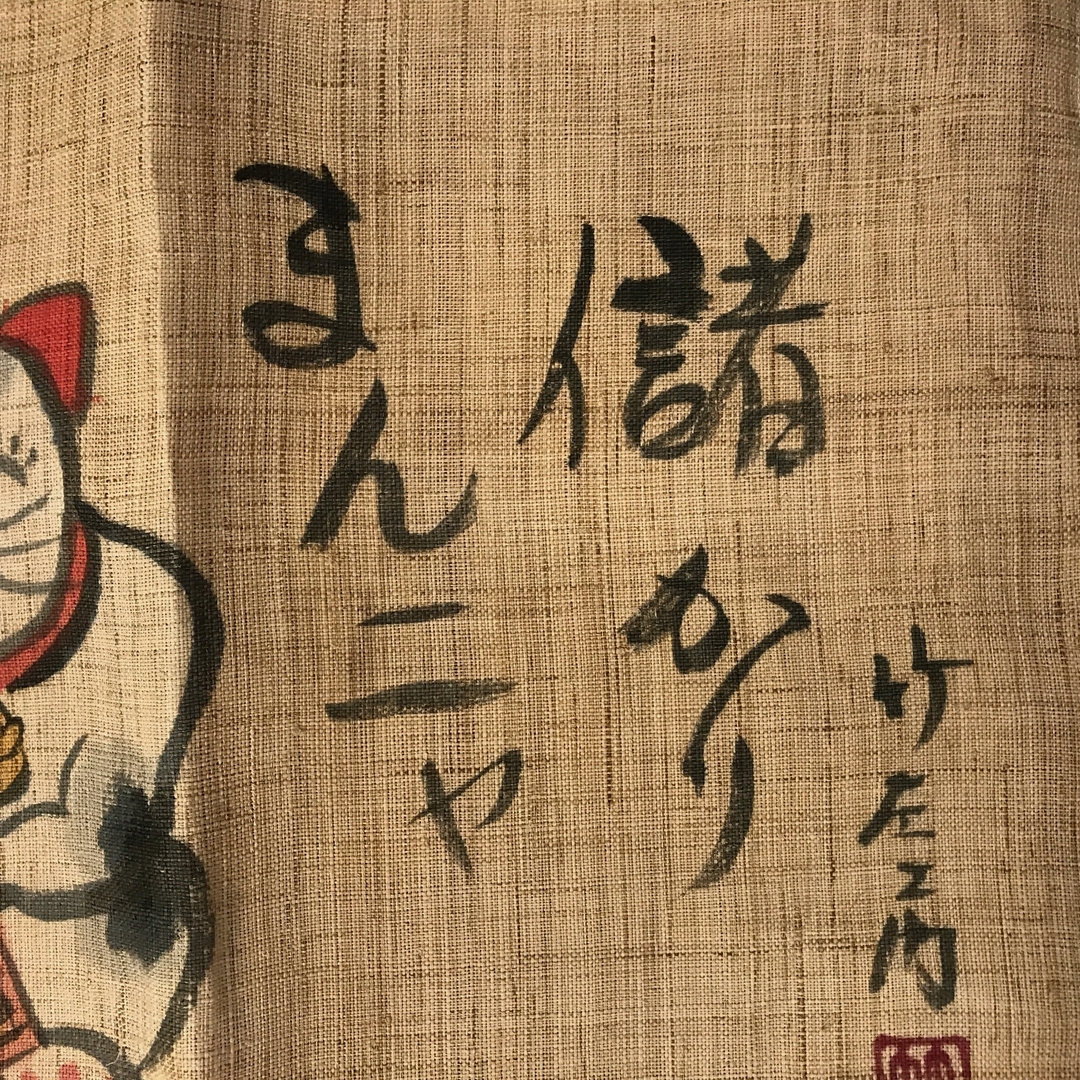 儲かり
まんニャ
竹左エ門